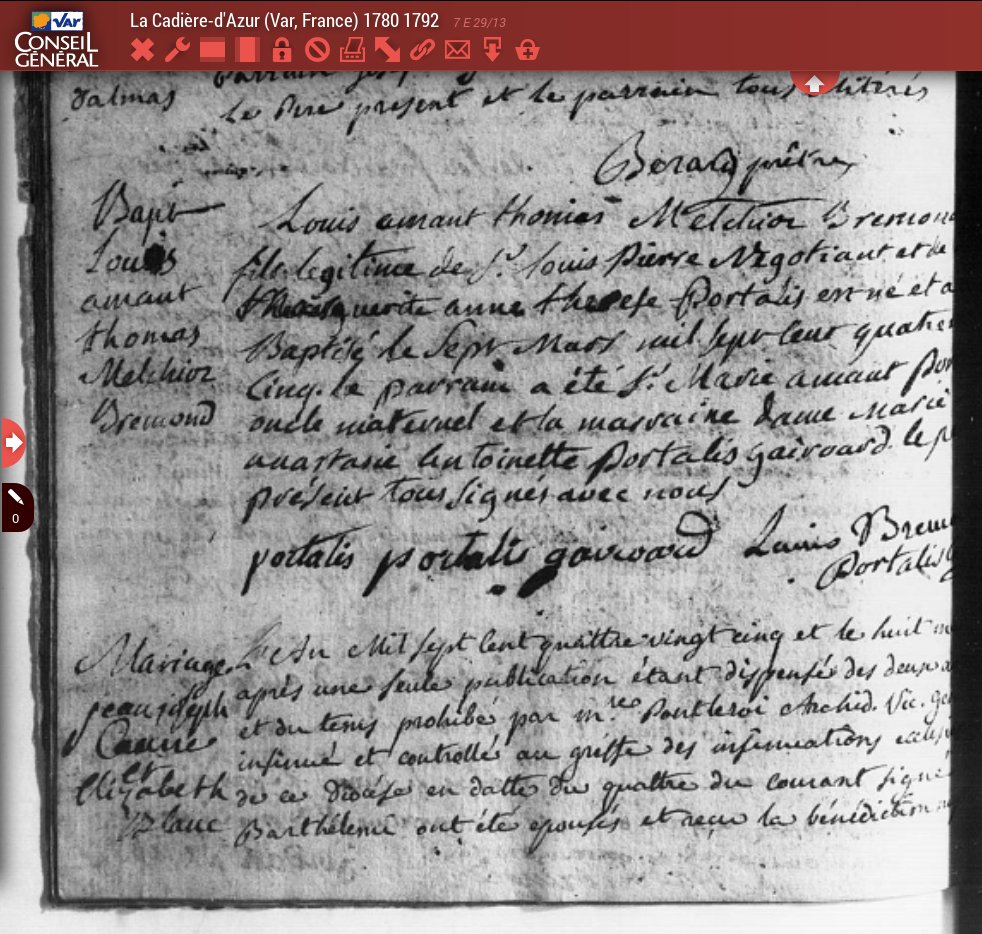 VAR
CONSEIL
GÉNÉRAL
La Cadière-d'Azur (Var, France) 1780 1792 7 E 29/13
dalmas
le Pere present et le parrain tous
Berard prêtre
Bapt
Louis
amant
thomas
Melchior
Bremond
Louis amant thomas Melchior Bremon
fils legitime de Sr. louis Pierre Negotiant et de
anne therese Portalis est né et a
Baptisé le Sept Mars mil sept cent quatre
Cinq. le parrain a été Sr. Marie amant Por
oncle maternel et la marraine dame Marie
anastasie antoinette Portalis gairoard le p
présent tous signés avec nous
portalis portalis gairoard Louis Brem
Portalis
Mariage
jean joseph
Caune
et
Elizabeth
Blanc
L'An Mil sept cent quattre vingt cinq et le huit m
après une seule publication étant dispensés des deux a
et du tems prohibé par mre. Pontleroi Archid. Vic. ge
insinué et controllé au greffe des insinuations
de ce Diocése en datte du quattre du courant signé
Barthélemi ont été epousés et reçu la bénédiction
0